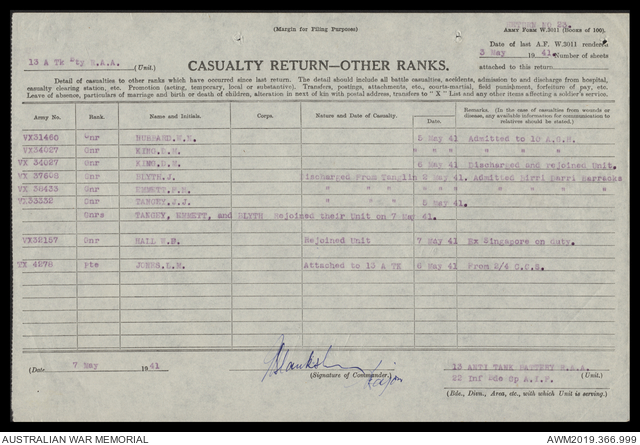 (Margin for Filing Purposes)
ARMY FORM W.3011 (BOOKS OF 100).
Date of last A.F. W.3011 rendered
3 May 1941. Number of sheets
attached to this return
13 A TK Bty R.A.A. (Unit.)
CASUALTY RETURN—OTHER RANKS.
Detail of casualties to other ranks which have occurred since last return. The detail should include all battle casualties, accidents, admission to and discharge from hospital,
casualty clearing station, etc. Promotion (acting, temporary, local or substantive). Transfers, postings, attachments, etc., courts-martial, field punishment, forfeiture of pay, etc.
Leave of absence, particulars of marriage and birth or death of children, alteration in next of kin with postal address, transfer to "X" List and any other items affecting a soldier's service.
Army No. Rank. Name and Initials. Corps. Nature and Date of Casualty. Remarks. (In the case of casualties from wounds or disease, any available information for communication to relatives should be stated.)
VX31460 Gnr HUBBARD.W.N. 5 May 41 Admitted to 10 A.G.H.
VX34027 Gnr KING.D.M. " " " " "
VX 34027 Gnr KING.D.M. 6 May 41 Discharged and rejoined Unit.
VX 37598 Gnr BLYTH.J. Discharged From Tanglin 2 May 41. Admitted Birri Darri Barracks
VX 38433 Gnr EMMETT.F.M. " " " " " " "
VX33332 Gnr TANGEY.J.J. " " " 5 May 41.
Gnrs TANGEY, EMMETT, and BLYTH Rejoined their Unit on 7 May 41.
VX39157 Gnr HALL W.F. Rejoined Unit 7 May 41 Ex Singapore on duty.
TX 4278 Pte JONES.L.M. Attached to 13 A TK 6 May 41 From 2/4 C.C.S.
(Date 7 May 1941
(Signature of Commander.) Major
13 ANTI TANK BATTERY R.A.A. (Unit.)
22 Inf Bde Gp A.I.F.
(Bde., Divn., Area, etc., with which Unit is serving.)
AUSTRALIAN WAR MEMORIAL
AWM2019.366.999